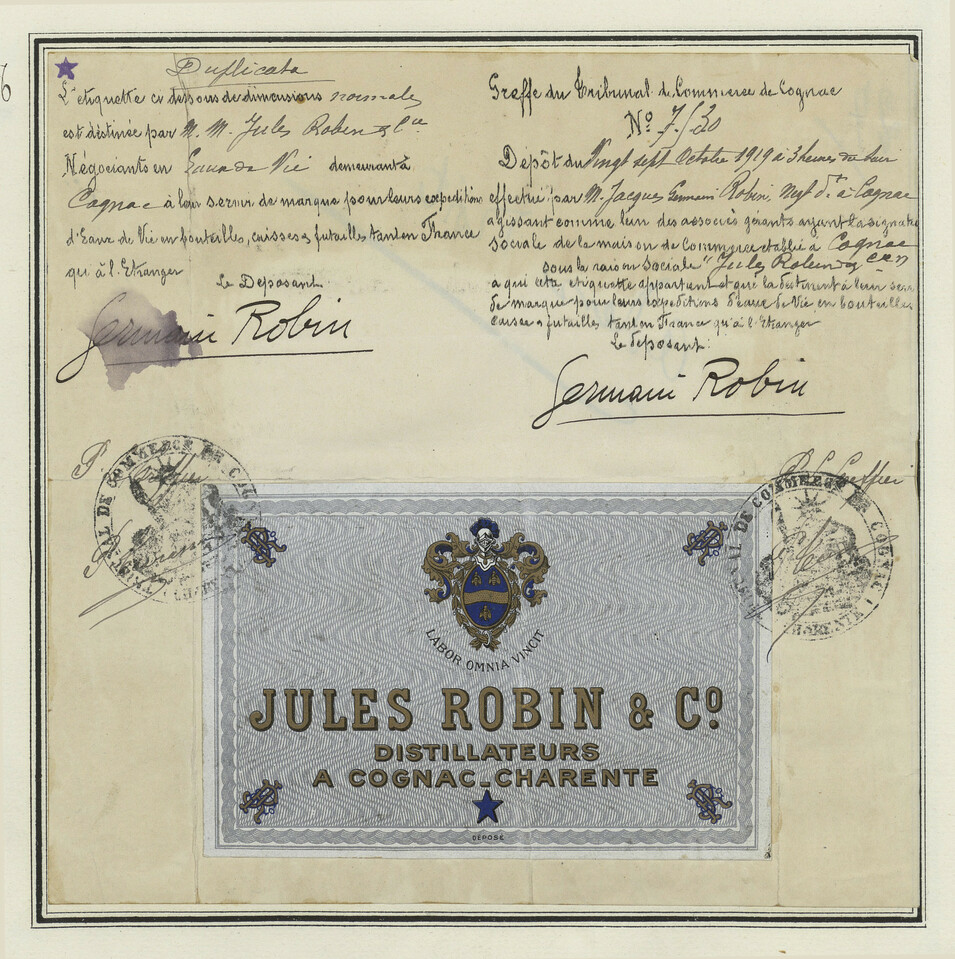 Duplicata
L'etiquette ci dessous de dimensions normales
est destinée par M. M. Jules Robin & Cie
Négociants en Eaux de Vie demeurant à
Cognac à leur servir de marque pour leurs expeditions
d'Eaux de Vie en bouteilles, caisses & futailles tant en France
qu'à l'Etranger
Le Deposant
Germain Robin
Greffe du Tribunal de Commerce de Cognac
No 7/30
Dépôt du Vingt sept Octobre 1919 à 3 heures du soir
effectué par M. Jacques Germain Robin, Ngt dt à Cognac
agissant comme l'un des associés gérants ayant la signature
sociale de la maison de Commerce etablie à Cognac
sous la raison sociale "Jules Robin & Cie"
a qui cette etiquette appartient et qui la destinent à leur servir
de marque pour leurs expeditions d'eaux de Vie en bouteilles
caisses & futailles tant en France qu'à l'Etranger
Le deposant:
Germain Robin
P. Greffier
P. Greffier
TRIBUNAL DE COMMERCE DE COGNAC
TRIBUNAL DE COMMERCE DE COGNAC
LABOR OMNIA VINCIT
JULES ROBIN & Co
DISTILLATEURS
A COGNAC-CHARENTE
DÉPOSÉ